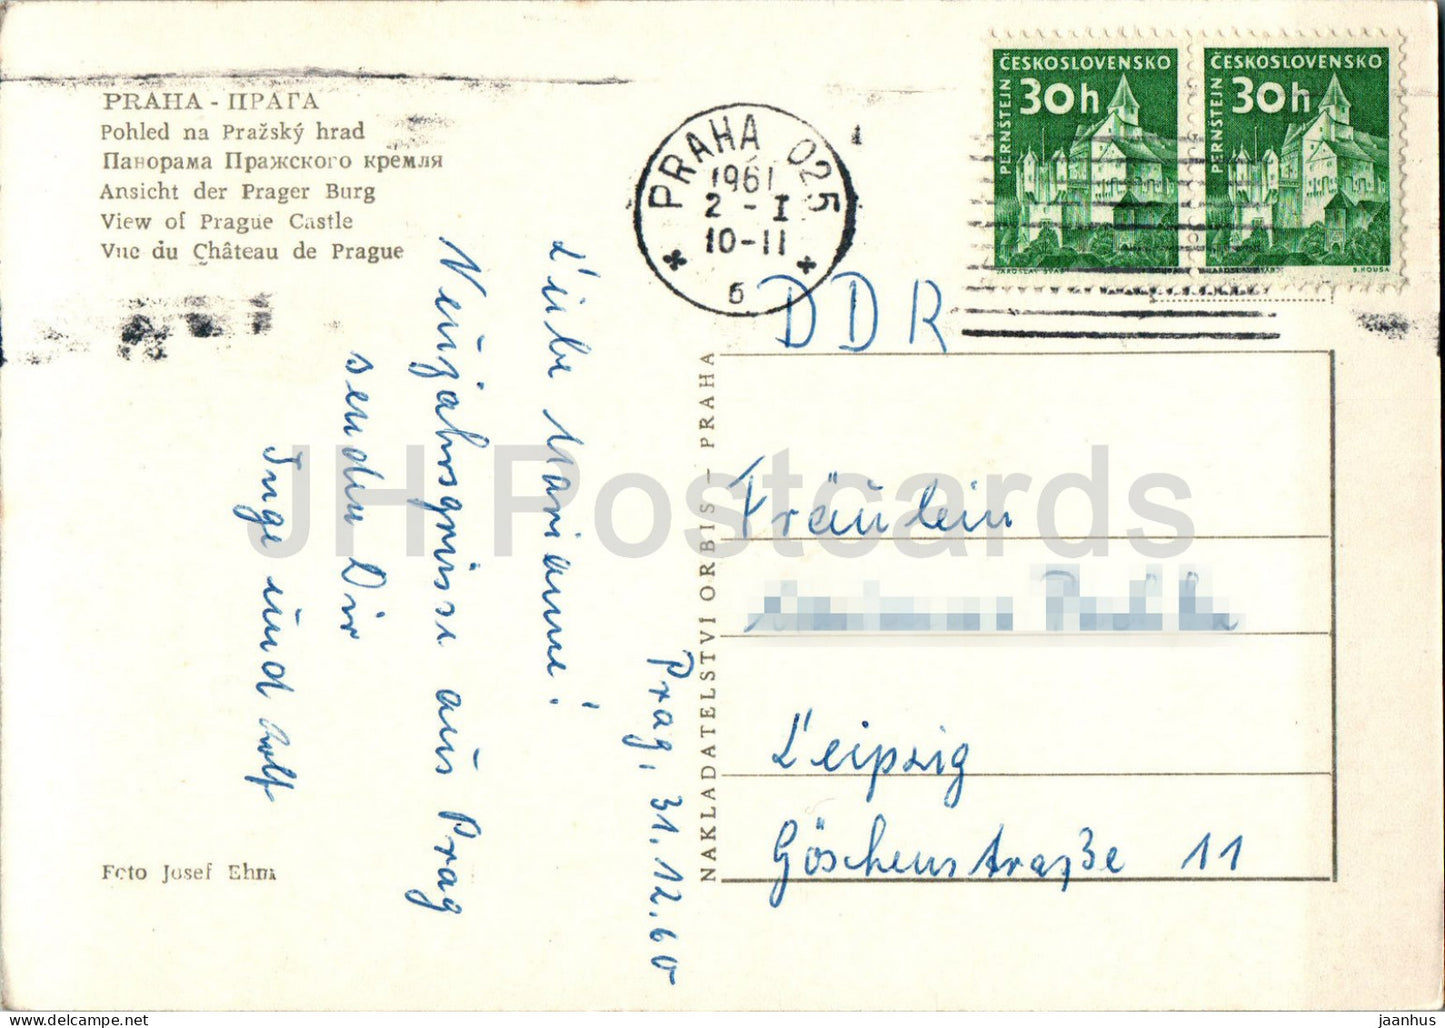 PRAHA - ПРАГА
Pohled na Pražský hrad
Панорама Пражского кремля
Ansicht der Prager Burg
View of Prague Castle
Vue du Château de Prague
Foto Josef Ehm
Prag, 31.12.60
Liebe Marianne!
Neujahrsgrüsse aus Prag
senden Dir
Inge und Rolf
NAKLADATELSTVÍ ORBIS - PRAHA
PRAHA 025
1961
2 - I
10-11
ČESKOSLOVENSKO
30h
PERNŠTEJN
JAROSLAV ŠVÁB
ČESKOSLOVENSKO
30h
PERNŠTEJN
JAROSLAV ŠVÁB
B. HOUSA
DDR
Fräulein
Leipzig
Göschenstraße 11
JH Postcards
jaanhus © delcampe.net